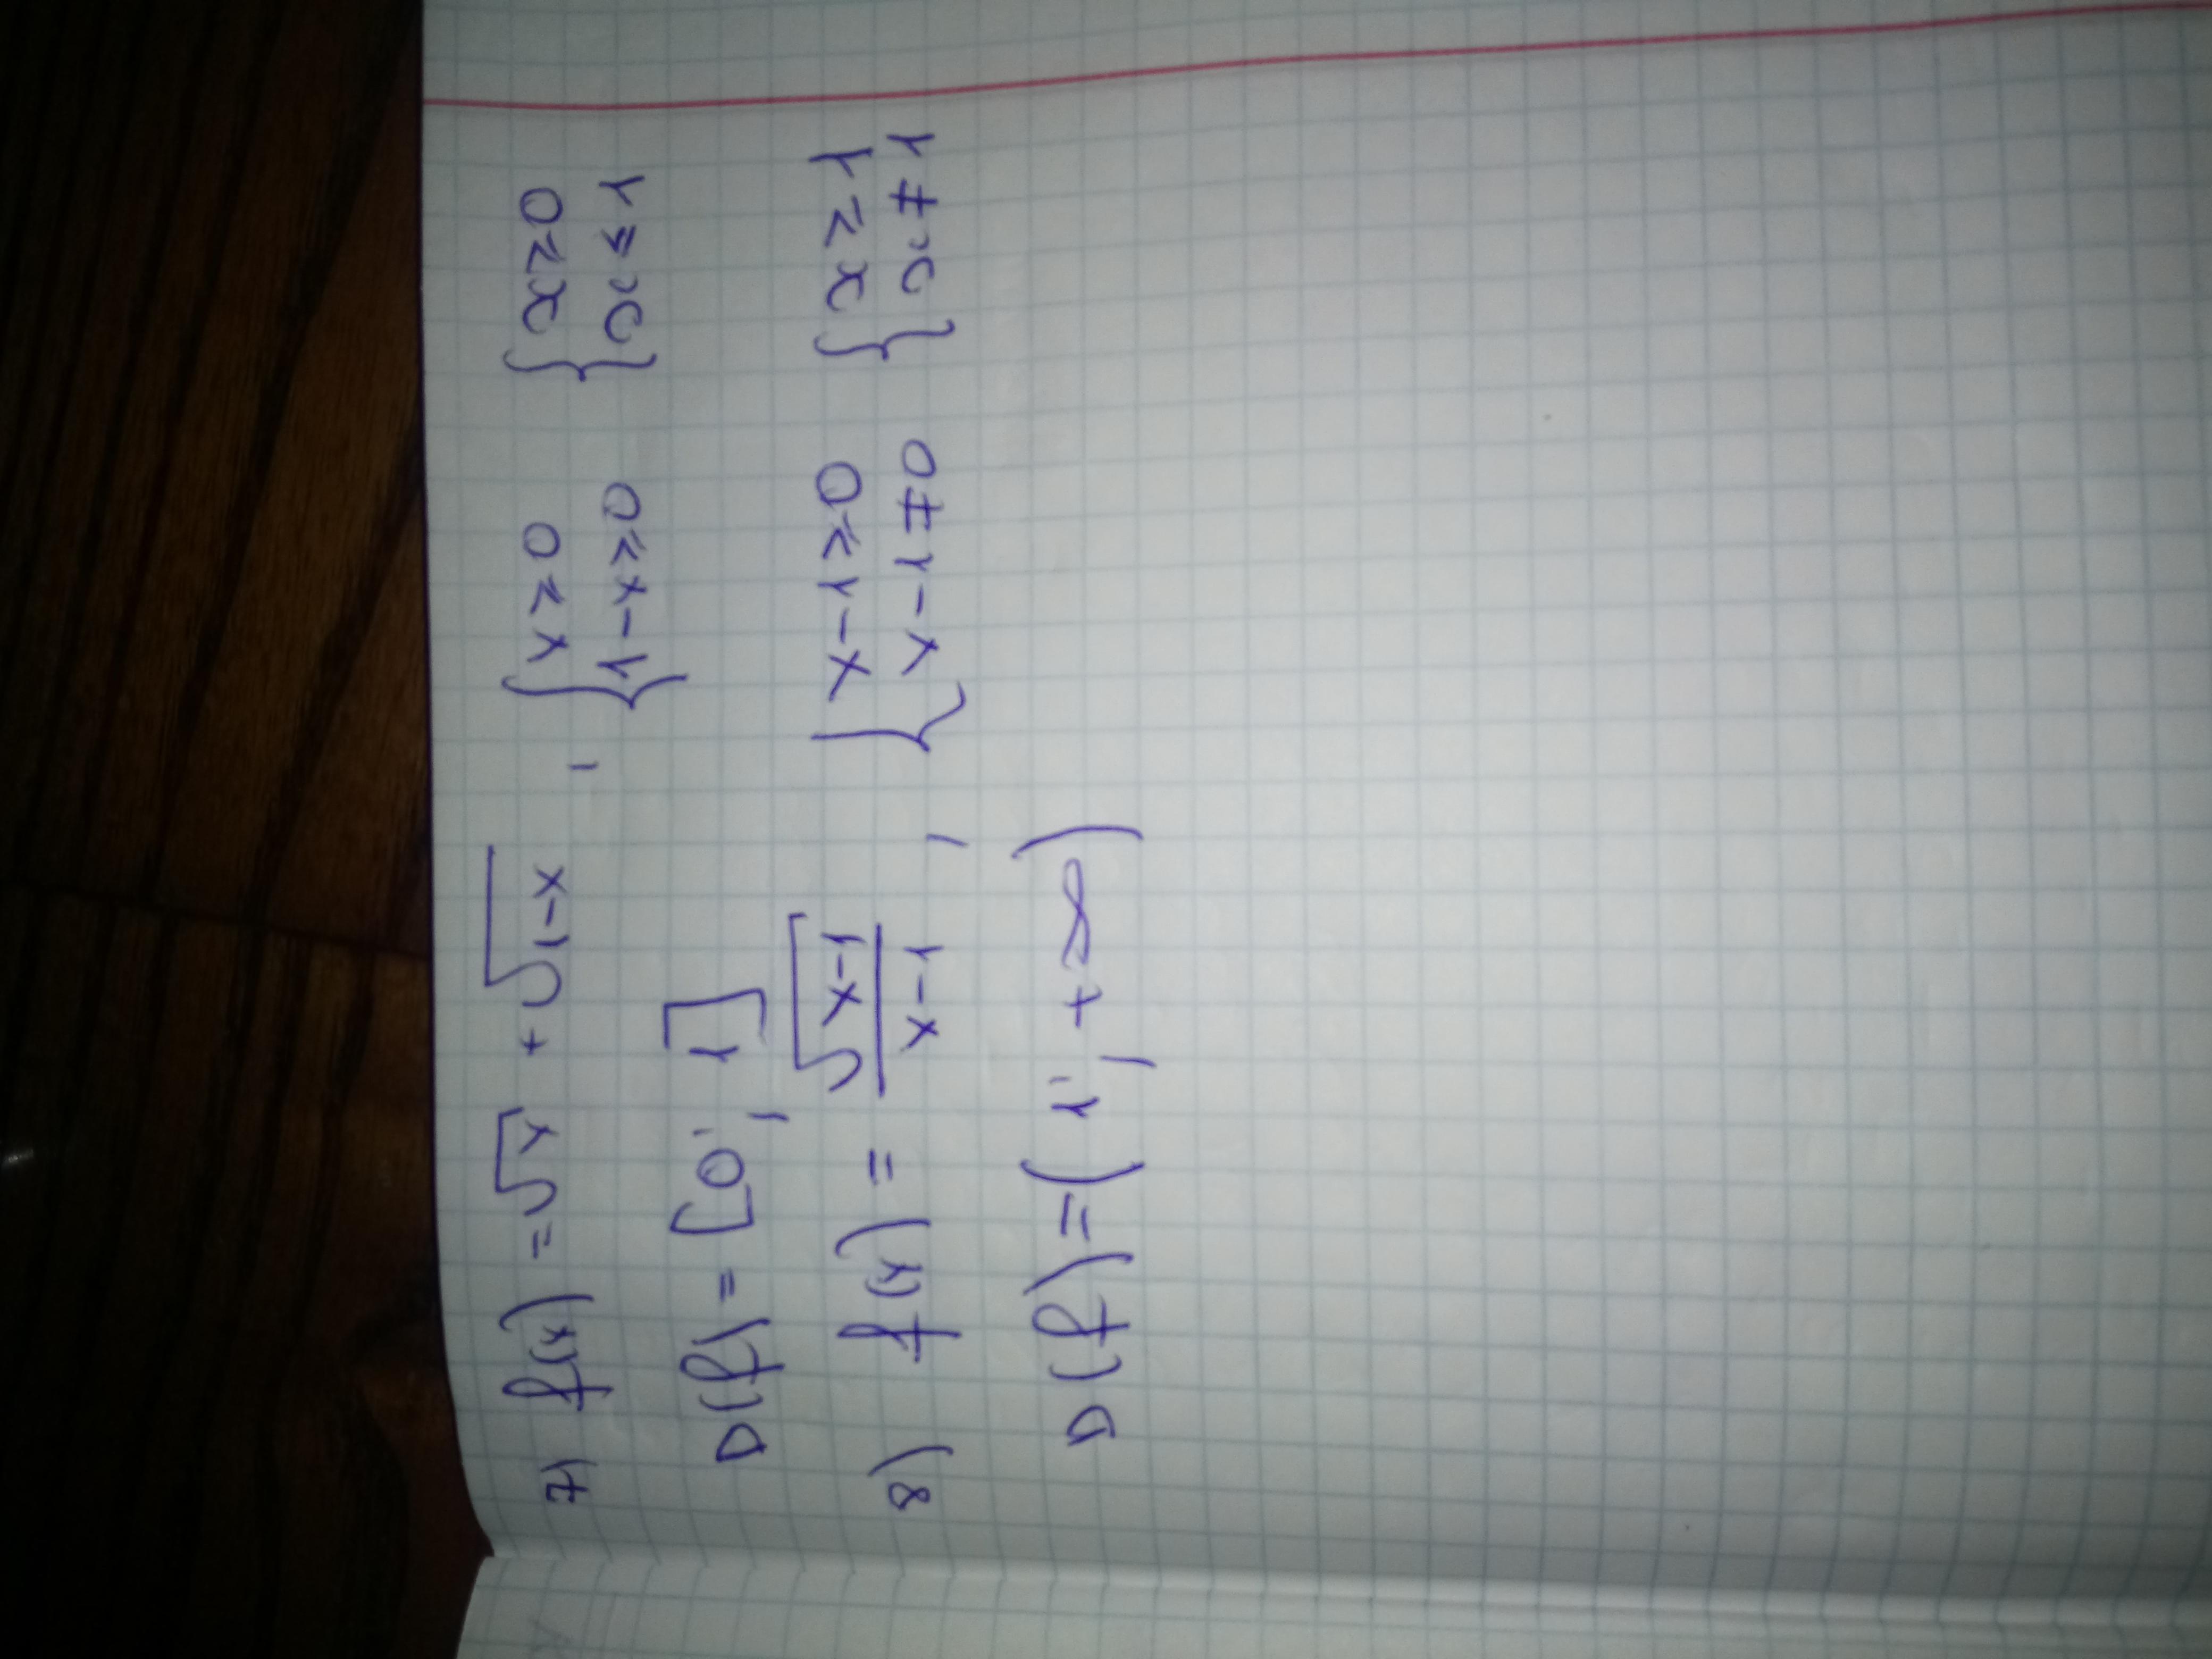 7) f(x) = √x + √1-x , {x ≥ 0 {x ≥ 0
1 - x ≥ 0 x ≤ 1
D(f) = [0; 1]
8) f(x) = √x-1 / x-1 , {x - 1 ≥ 0 {x ≥ 1
x - 1 ≠ 0 x ≠ 1
D(f) = (1; +∞)